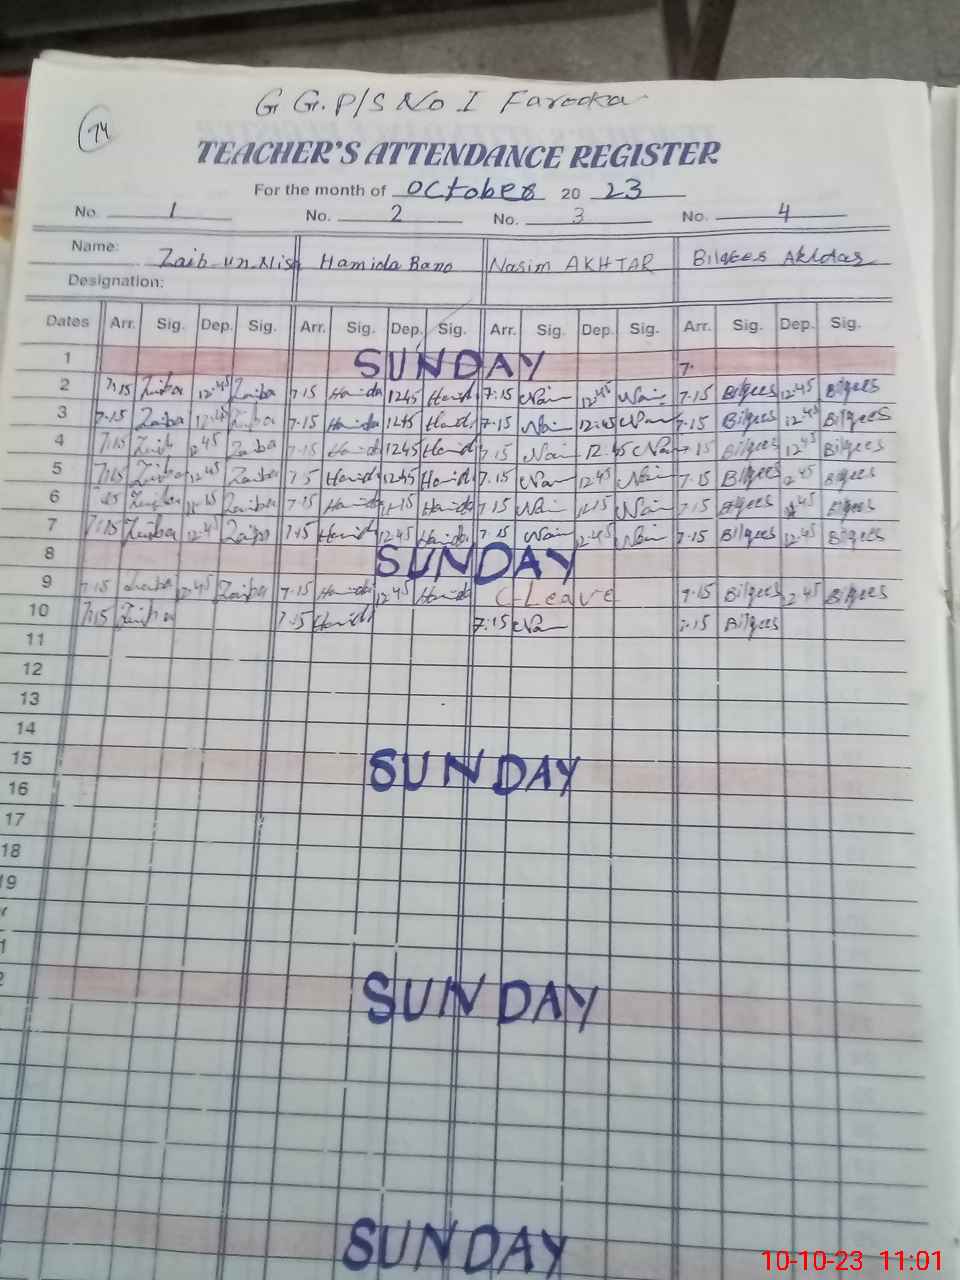 G G.P/S No I Farooka
74
TEACHER'S ATTENDANCE REGISTER
For the month of October 20 23
No. 1 No. 2 No. 3 No. 4
Name: Zaib un Nisa Hamida Bano Nasim AKHTAR Bilqees Akhtar
Designation:
Dates Arr. Sig. Dep. Sig. Arr. Sig. Dep. Sig. Arr. Sig. Dep. Sig. Arr. Sig. Dep. Sig.
1 SUNDAY 7.
2 7:15 Zaiba 12.45 Zaiba 7.15 Hamida 1245 Hamid 7:15 12.45 7.15 Bilqees 12.45 Bilqees
3 7.15 Zaiba 12.45 Zaiba 7.15 Hamida 1245 Hamid 7.15 12.45 7.15 Bilqees 12.45 Bilqees
4 7.15 Zaiba 12.45 Zaiba 7.15 Hamida 1245 Hamid 7.15 12.45 15 Bilqees 12.45 Bilqees
5 7.15 Zaiba 12.45 Zaiba 7.15 Hamida 1245 Hamid 7.15 12.45 7.15 Bilqees 12.45 Bilqees
6 Zaiba 11.15 Zaiba 7.15 Hamida 11.15 Hamida 7.15 11.15 7.15 Bilqees Bilqees
7 7.15 Zaiba 12.45 Zaiba Hamida 12.45 Hamida 7.15 12.45 7.15 Bilqees 12.45 Bilqees
8 SUNDAY
9 7.15 Zaiba 12.45 Zaiba 7.15 Hamida 12.45 Hamida C-Leave 7.15 Bilqees 12.45 Bilqees
10 7:15 Zaiba 7.15 Hamida 7:15 7.15 Bilqees
11
12
13
14
15 SUNDAY
16
17
18
19
SUNDAY
SUNDAY
10-10-23 11:01